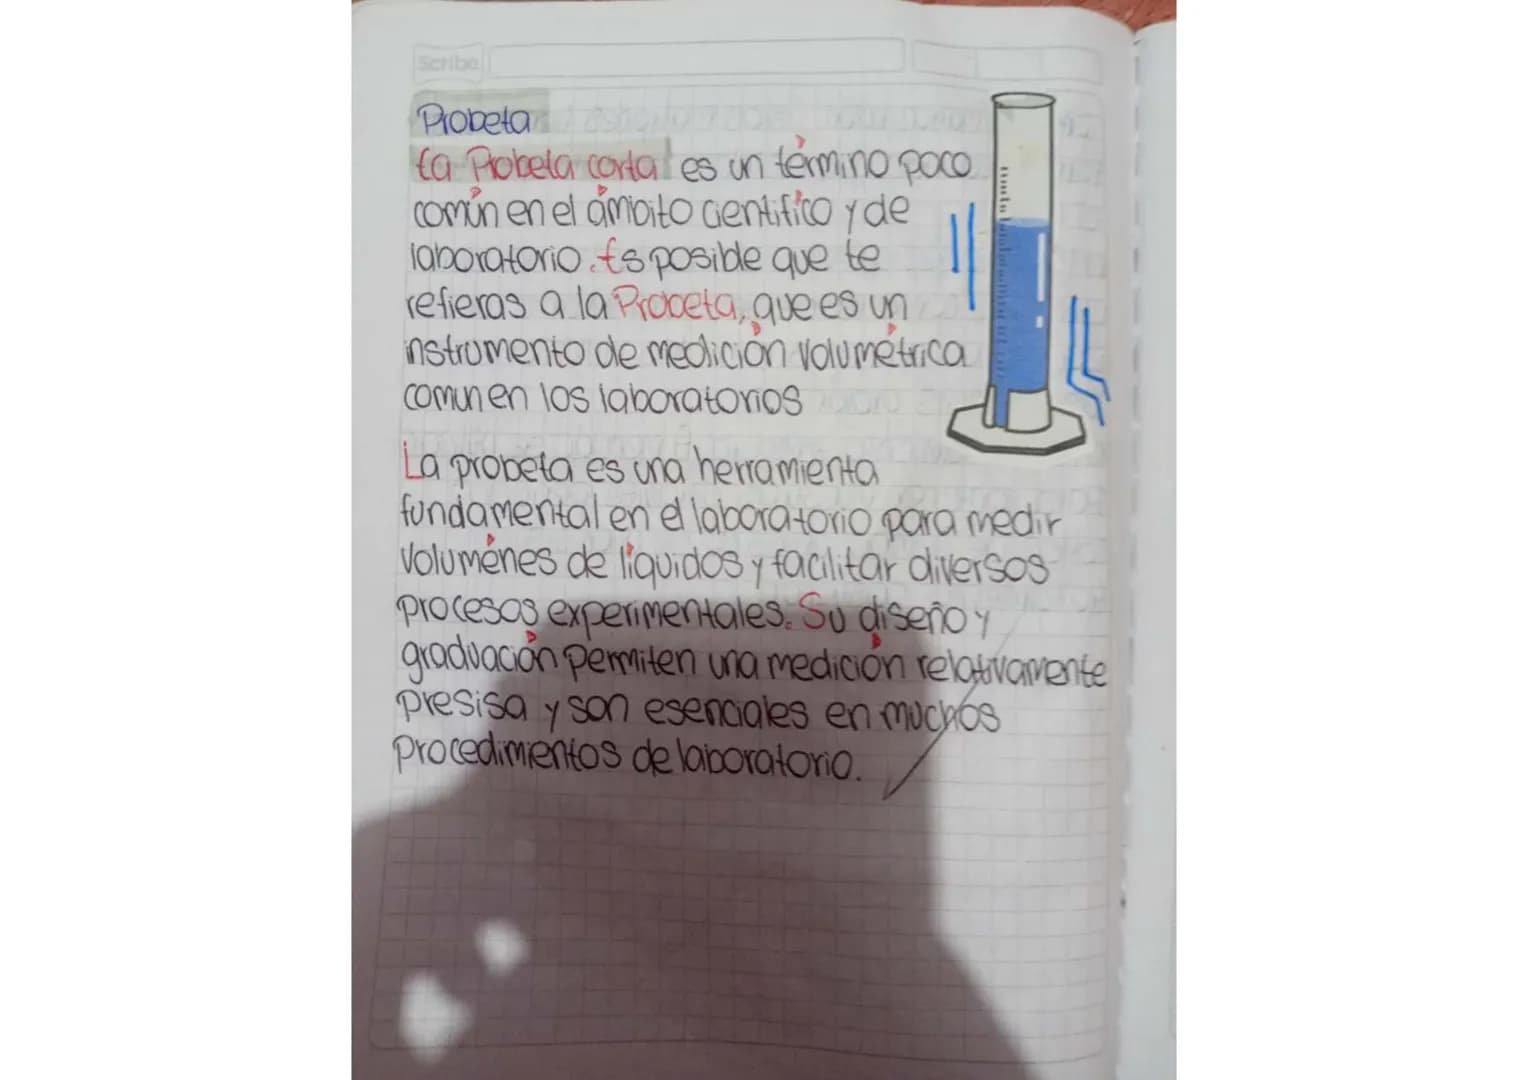 Scribe
Probeta
La Probeta corta es un término poco
común en el ámbito cientifíco y de
laboratorio. Es posible que te
refieras a la Probeta, que es un
instrumento de medición volumétrica
comun en los laboratorios
La probeta es una herramienta
fundamental en el laboratorio para medir
Voluménes de líquidos y facilitar diversos
procesos experimentales. Su diseño y
graduación permiten una medición relativamente
presisa y son esenciales en muchos
procedimientos de laboratorio.